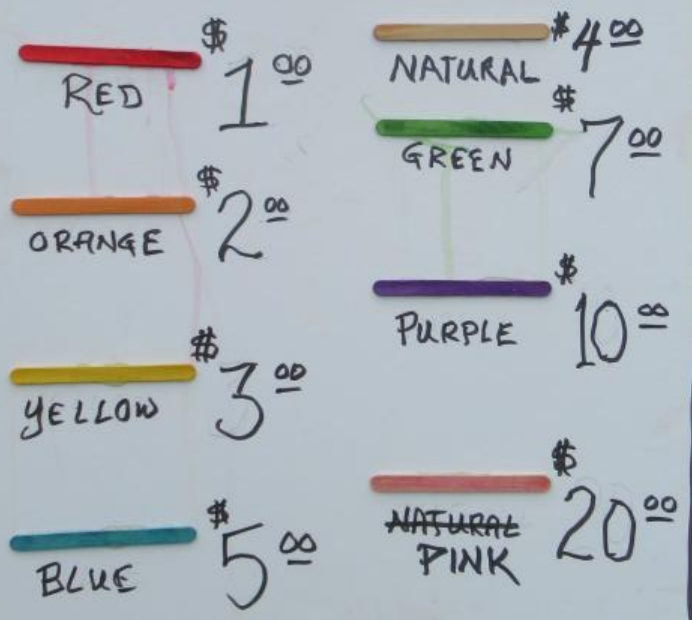 RED $1 00
ORANGE $2 00
YELLOW $3 00
BLUE $5 00
NATURAL $4 00
GREEN $7 00
PURPLE $10 00
NATURAL
PINK $20 00